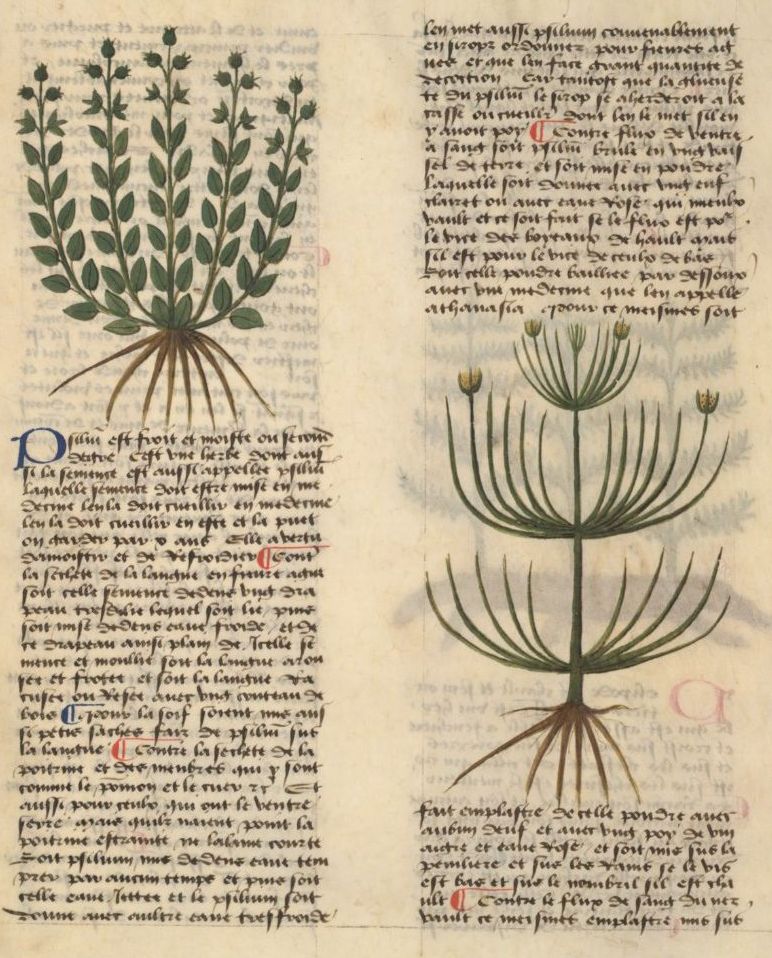 Psiliu est froit et moiste ou second
degre C'est une herbe dont aus
si la semence est aussi appellee psiliu
laquelle semence doit estre mise en me
decine len la doit cueillir en medecine
len la doit cueillir en este et la puet
on garder par x ans Elle a vertu
damoistir et de Refroidier ¶ Cont
la sechete de la langue en fieure ague
soit celle semence dedens ung dra
peau tresdelie lequel soit lie puis
soit mise dedens eaue froide et de
ce drapeau ainsi plain de Icelle se
mence et moullie soit la langue arou
see et frotee et soit la langue Ra
clusee ou Resee avec ung couteau de
bois ¶ Pour la soif soient mis aus
si petis sachés fais de psiliu sus
la langue ¶ Contre la sechete de la
poitrine et des menbres qui y sont
comme le pomon et le cuer &c Et
aussi pour ceulx qui ont le ventre
serre mais quilz naient point la
poitrine estrainte ne lalaine courte
Soit psilium mis dedens eaue tem
pree par aucun temps et puis soit
celle eaue Jettee et le psilium soit
donne avec aultre eaue tresfroide
len met aussi psilium convenablement
en sirops ordonnez pour fieures ag
ues et que len face grant quantite de
decoction Car tantost que la glueuse
te du psiliu le sirop se aherderoit a la
casse ou cueillr dont len le met sil en
y avoit poy ¶ Contre flux de ventre
a sang soit psiliu brule en ung vais
sel de terre et soit mise en pouldre
laquelle soit donnee avec ung euf
claret ou avec eaue Rose qui mieulx
vault et ce soit fait se le flux est po
le vice des boyeaux de hault mais
sil est pour le vice de ceulx de bas
Soit celle pouldre baillee par dessoux
avec une medecine que len appelle
athanasia Pour ce meismes soit
fait emplastre de celle pouldre avec
aubun deuf et avec ung poy de vin
aigre et eaue Rose et soit mis sus la
peniliere et sus les Rains se le vis
est bas et sus le nombril sil est cha
ult ¶ Contre le flux de sang du nez
vault ce meismes emplastre mis sus